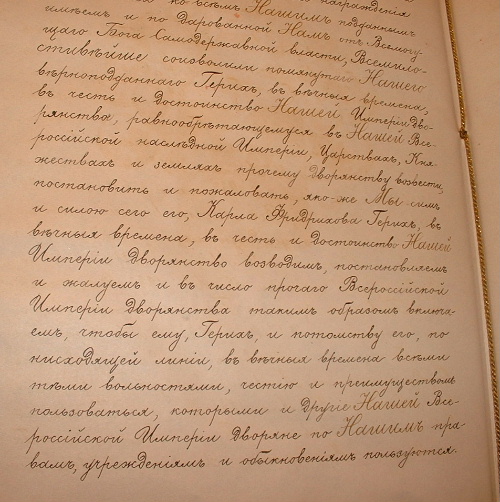 ко всѣмъ Нашимъ подданнымъ
имѣемъ и по дарованной Намъ отъ Всемогу-
щаго Бога Самодержавной власти, Всемило-
стивѣйше соизволили помянутаго Нашего
вѣрноподданнаго Герихъ, въ вѣчныя времена,
въ честь и достоинство Нашей Имперіи Дво-
рянства, равнообрѣтающемуся въ Нашей Все-
россійской наслѣдной Имперіи, Царствахъ, Кня-
жествахъ и земляхъ прочему дворянству возвести,
постановить и пожаловать, яко-же Мы симъ
и силою сего его, Карла Фридрихова Герихъ, въ
вѣчныя времена, въ честь и достоинство Нашей
Имперіи дворянство возводимъ, постановляемъ
и жалуемъ и въ число прочаго Всероссійской
Имперіи дворянства такимъ образомъ включа-
емъ, чтобы ему, Герихъ, и потомству его, по
нисходящей линіи, въ вѣчныя времена всѣми
тѣми вольностями, честію и преимуществомъ
пользоваться, которыми и другіе Нашей Все-
россійской Имперіи дворяне по Нашимъ пра-
вамъ, учрежденіямъ и обыкновеніямъ пользуются.